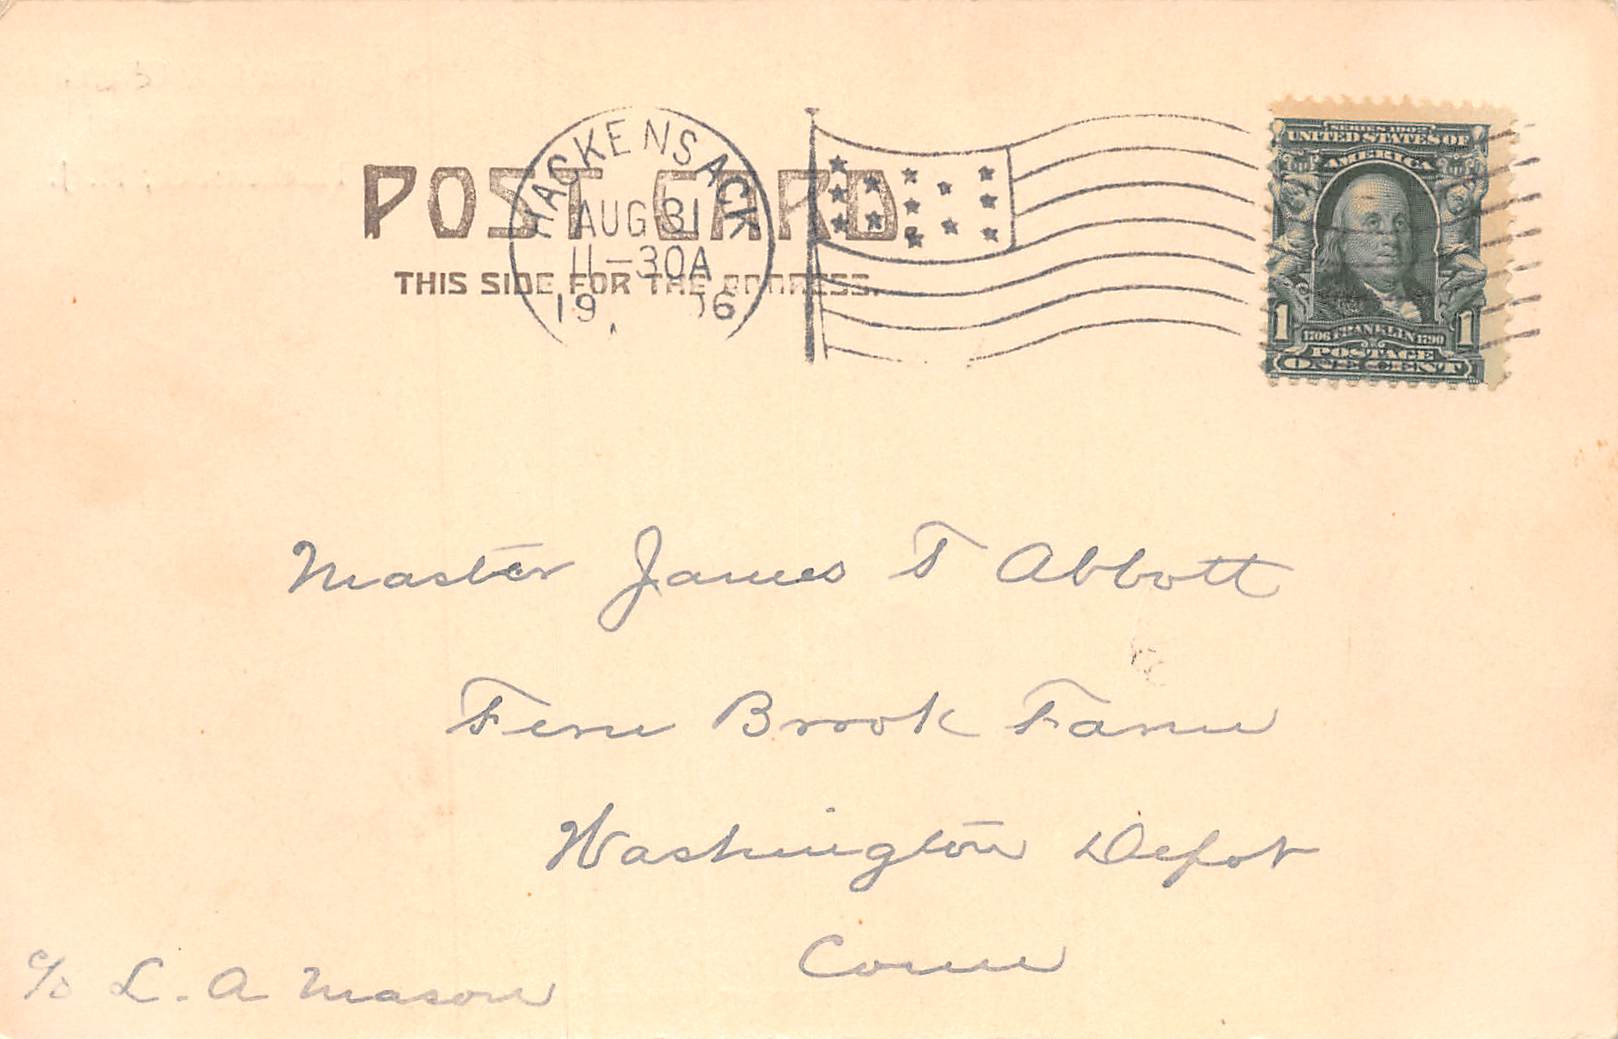 POST CARD.
THIS SIDE FOR THE ADDRESS.
HACKENSACK
AUG 31
11-30A
1906
SERIES 1902
UNITED STATES OF
AMERICA
1 1706 FRANKLIN 1790 1
POSTAGE
ONE CENT
Master James T Abbott
Fern Brook Farm
Washington Depot
Conn
c/o L. A Mason